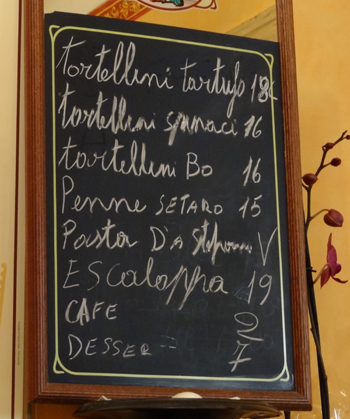 tortellini tartufo 18€
tortellini spinaci 16
tortellini Bo 16
Penne SETARO 15
Pasta D'A V
EScaloppa 19
CAFE 2
DESSER 7